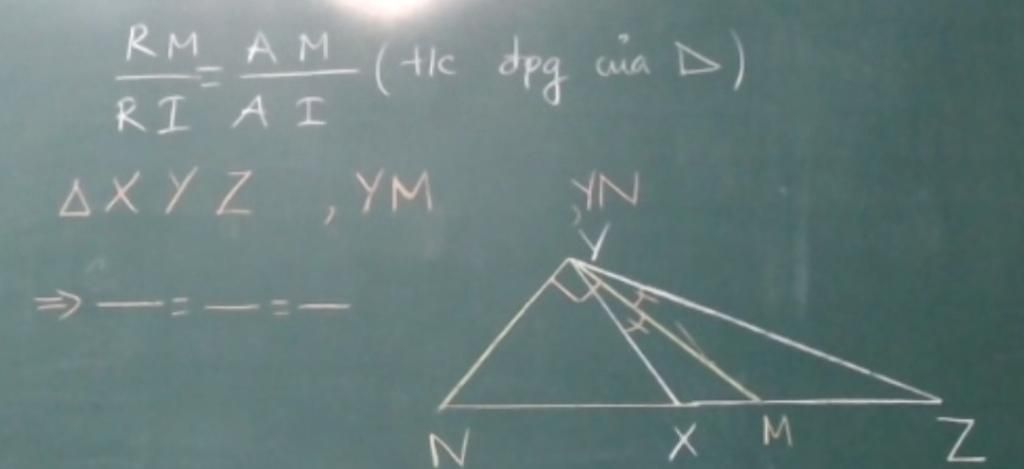 RM/RI = AM/AI (t/c đpg của Δ)
Δ X Y Z , YM , YN
⇒ — = — = —
Y
N X M Z